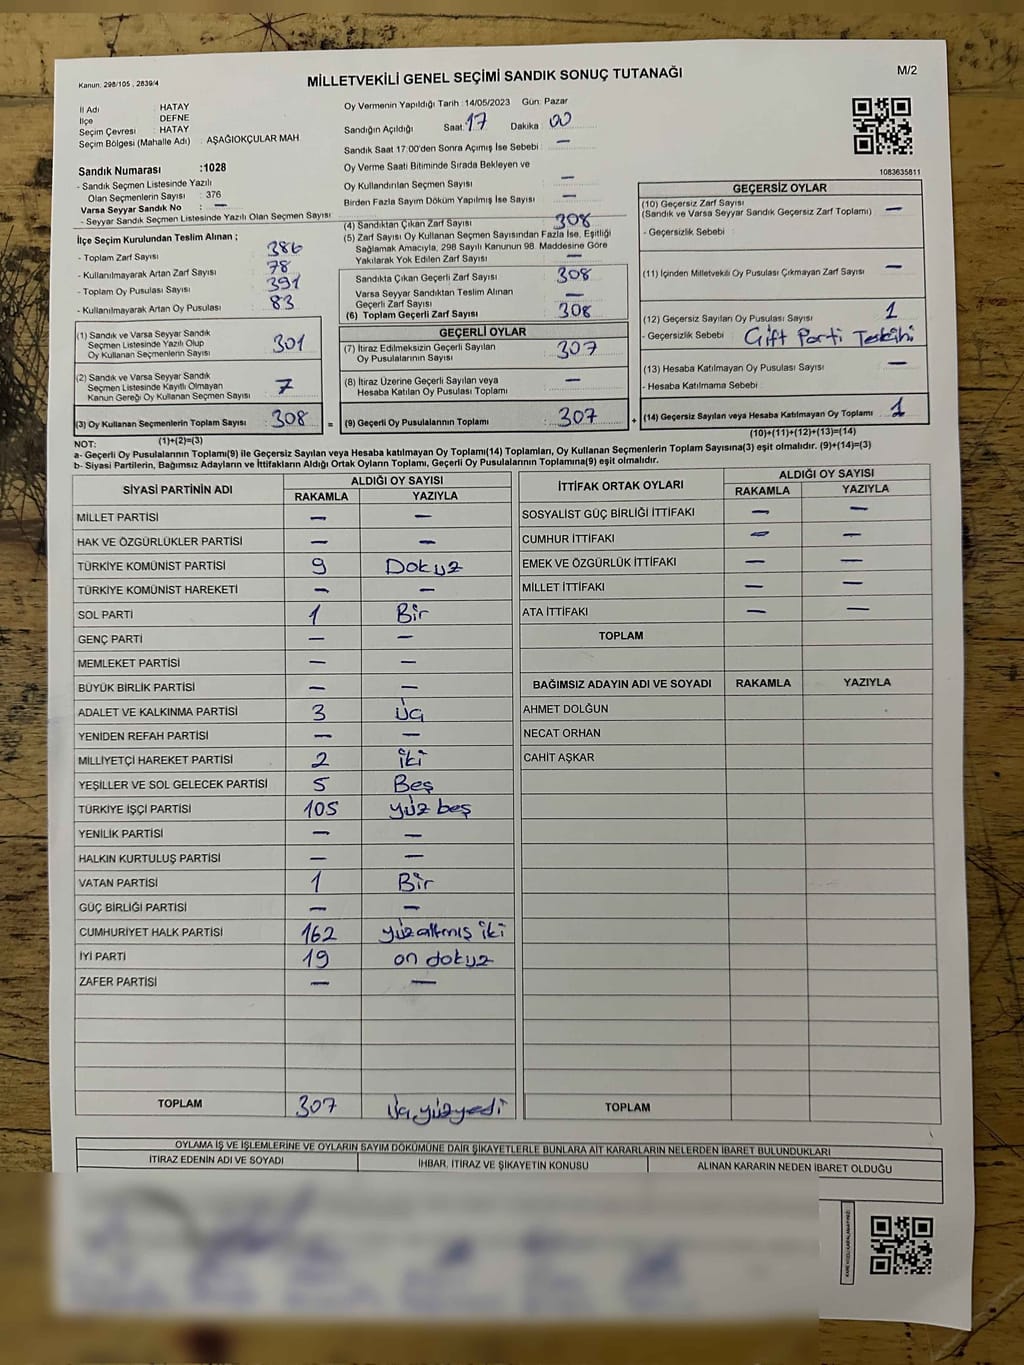 Kanun: 298/105 , 2839/4
MİLLETVEKİLİ GENEL SEÇİMİ SANDIK SONUÇ TUTANAĞI
M/2
İl Adı HATAY
İlçe DEFNE
Seçim Çevresi : HATAY
Seçim Bölgesi (Mahalle Adı) : AŞAĞIOKÇULAR MAH
Sandık Numarası :1028
- Sandık Seçmen Listesinde Yazılı
Olan Seçmenlerin Sayısı : 376
Varsa Seyyar Sandık No : —
- Seyyar Sandık Seçmen Listesinde Yazılı Olan Seçmen Sayısı
İlçe Seçim Kurulundan Teslim Alınan ;
- Toplam Zarf Sayısı 386
- Kullanılmayarak Artan Zarf Sayısı 78
- Toplam Oy Pusulası Sayısı 391
- Kullanılmayarak Artan Oy Pusulası 83
(1) Sandık ve Varsa Seyyar Sandık
Seçmen Listesinde Yazılı Olup
Oy Kullanan Seçmenlerin Sayısı 301
(2) Sandık ve Varsa Seyyar Sandık
Seçmen Listesinde Kayıtlı Olmayan
Kanun Gereği Oy Kullanan Seçmen Sayısı 7
(3) Oy Kullanan Seçmenlerin Toplam Sayısı 308 =
(1)+(2)=(3)
Oy Vermenin Yapıldığı Tarih :14/05/2023 Gün: Pazar
Sandığın Açıldığı Saat: 17 Dakika 00
Sandık Saat 17:00'den Sonra Açımış İse Sebebi : —
Oy Verme Saati Bitiminde Sırada Bekleyen ve
Oy Kullandırılan Seçmen Sayısı —
Birden Fazla Sayım Döküm Yapılmış İse Sayısı —
(4) Sandıktan Çıkan Zarf Sayısı 308
(5) Zarf Sayısı Oy Kullanan Seçmen Sayısından Fazla İse, Eşitliği
Sağlamak Amacıyla, 298 Sayılı Kanunun 98. Maddesine Göre
Yakılarak Yok Edilen Zarf Sayısı —
Sandıkta Çıkan Geçerli Zarf Sayısı 308
Varsa Seyyar Sandıktan Teslim Alınan
Geçerli Zarf Sayısı —
(6) Toplam Geçerli Zarf Sayısı 308
GEÇERLİ OYLAR
(7) İtiraz Edilmeksizin Geçerli Sayılan
Oy Pusulalarının Sayısı 307
(8) İtiraz Üzerine Geçerli Sayılan veya
Hesaba Katılan Oy Pusulası Toplamı —
(9) Geçerli Oy Pusulalarının Toplamı : 307 +
1083635811
GEÇERSİZ OYLAR
(10) Geçersiz Zarf Sayısı
(Sandık ve Varsa Seyyar Sandık Geçersiz Zarf Toplamı) —
- Geçersizlik Sebebi :
(11) İçinden Milletvekili Oy Pusulası Çıkmayan Zarf Sayısı —
(12) Geçersiz Sayılan Oy Pusulası Sayısı 1
- Geçersizlik Sebebi : Çift Parti Tercihi
(13) Hesaba Katılmayan Oy Pusulası Sayısı —
- Hesaba Katılmama Sebebi :
(14) Geçersiz Sayılan veya Hesaba Katılmayan Oy Toplamı 1
(10)+(11)+(12)+(13)=(14)
NOT:
a- Geçerli Oy Pusulalarının Toplamı(9) ile Geçersiz Sayılan veya Hesaba katılmayan Oy Toplamı(14) Toplamları, Oy Kullanan Seçmenlerin Toplam Sayısına(3) eşit olmalıdır. (9)+(14)=(3)
b- Siyasi Partilerin, Bağımsız Adayların ve İttifakların Aldığı Ortak Oyların Toplamı, Geçerli Oy Pusulalarının Toplamına(9) eşit olmalıdır.
SİYASİ PARTİNİN ADI ALDIĞI OY SAYISI
RAKAMLA YAZIYLA
MİLLET PARTİSİ — —
HAK VE ÖZGÜRLÜKLER PARTİSİ — —
TÜRKİYE KOMÜNİST PARTİSİ 9 Dokuz
TÜRKİYE KOMÜNİST HAREKETİ — —
SOL PARTİ 1 Bir
GENÇ PARTİ — —
MEMLEKET PARTİSİ — —
BÜYÜK BİRLİK PARTİSİ — —
ADALET VE KALKINMA PARTİSİ 3 üç
YENİDEN REFAH PARTİSİ — —
MİLLİYETÇİ HAREKET PARTİSİ 2 iki
YEŞİLLER VE SOL GELECEK PARTİSİ 5 Beş
TÜRKİYE İŞÇİ PARTİSİ 105 yüz beş
YENİLİK PARTİSİ — —
HALKIN KURTULUŞ PARTİSİ — —
VATAN PARTİSİ 1 Bir
GÜÇ BİRLİĞİ PARTİSİ — —
CUMHURİYET HALK PARTİSİ 162 yüzaltmış iki
İYİ PARTİ 19 on dokuz
ZAFER PARTİSİ — —
TOPLAM 307 üç yüzyedi
İTTİFAK ORTAK OYLARI ALDIĞI OY SAYISI
RAKAMLA YAZIYLA
SOSYALİST GÜÇ BİRLİĞİ İTTİFAKI — —
CUMHUR İTTİFAKI — —
EMEK VE ÖZGÜRLÜK İTTİFAKI — —
MİLLET İTTİFAKI — —
ATA İTTİFAKI — —
TOPLAM
BAĞIMSIZ ADAYIN ADI VE SOYADI RAKAMLA YAZIYLA
AHMET DOLĞUN
NECAT ORHAN
CAHİT AŞKAR
TOPLAM
OYLAMA İŞ VE İŞLEMLERİNE VE OYLARIN SAYIM DÖKÜMÜNE DAİR ŞİKAYETLERLE BUNLARA AİT KARARLARIN NELERDEN İBARET BULUNDUKLARI
İTİRAZ EDENİN ADI VE SOYADI İHBAR, İTİRAZ VE ŞİKAYETİN KONUSU ALINAN KARARIN NEDEN İBARET OLDUĞU